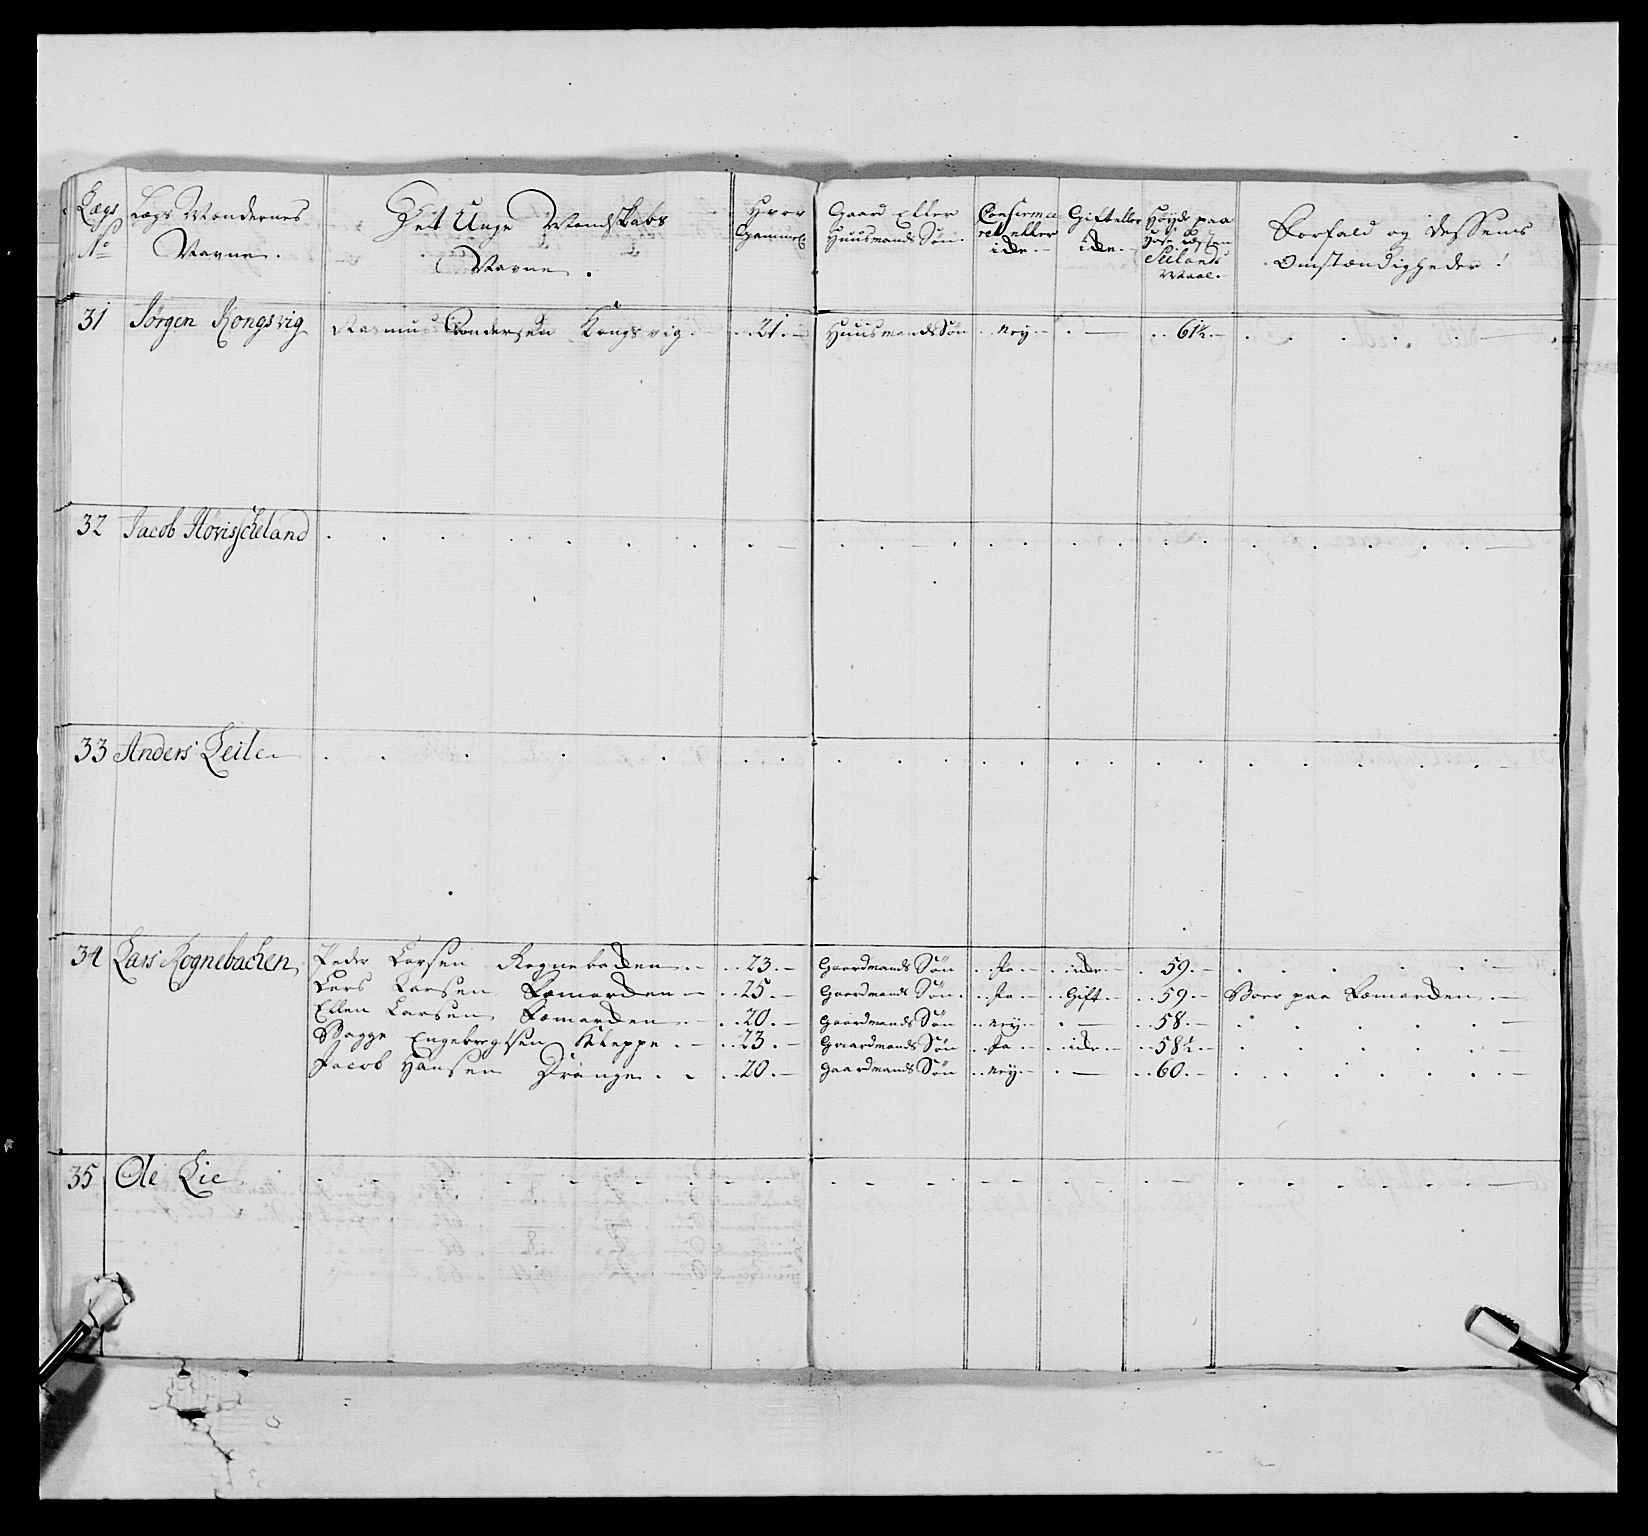 Lægs No
Lægs Mændernes Navne.
Det Unge Mandskabs Navne.
Hvor Gammel
Gaard Eller Huusmands Søn.
Confirmeret eller icke
Gift eller icke.
Høyde paa Siælands Maal.
Forfald og dessens Omstændigheder!
31 Jørgen Kongsvig Rasmus Andersen Kongsvig 21. Huusmands Søn ney — 61½.
32 Jacob Høvischeland
33 Anders Leile
34 Lars Rognebachen Peder Larsen Rognebacken 23. Gaardmands Søn Ja icke 59.
Lars Larsen Remarcken 25. Gaardmands Søn Ja Gift 59 Boer paa Remarcken
Ellen Larsen Remarcken 20. Gaardmands Søn ney — 58.
Bagge Engebregtsen Kleppe 23. Gaardmands Søn Ja icke 58½
Jacob Hansen Drange 20. Gaardmands Søn ney — 60.
35 Ole Lie